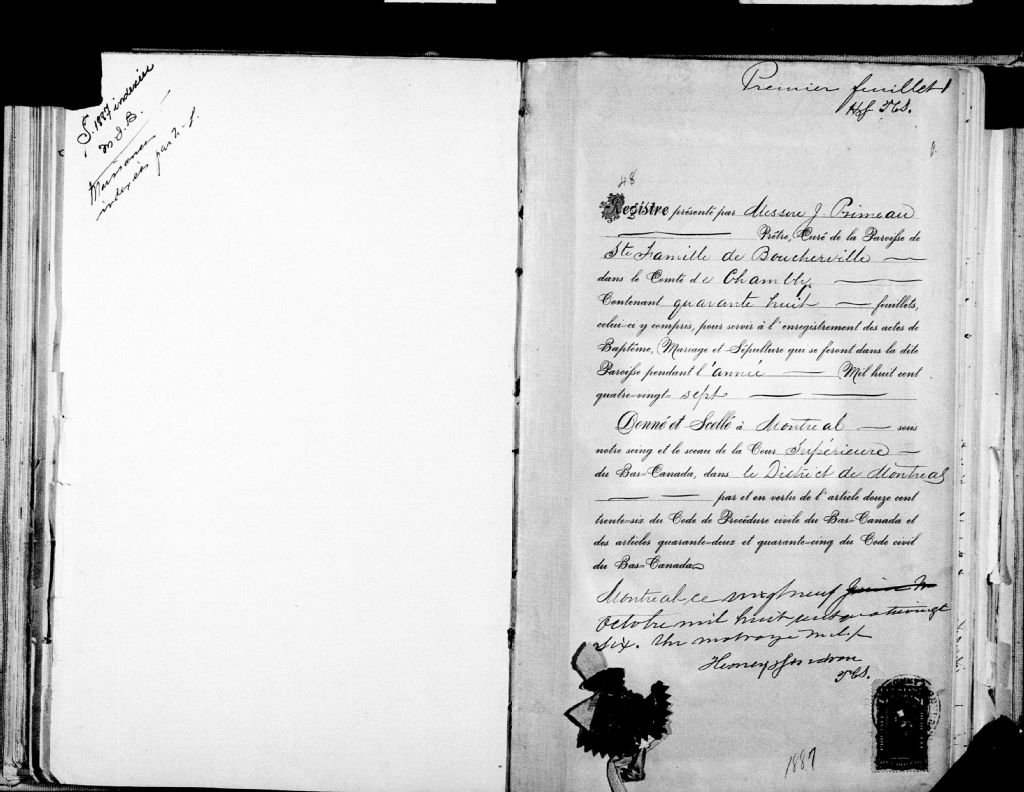 S. 1887 indexées
Naissances
indexées par
Premier feuillet
HJG PCS.
48
Registre présenté par Messire J. Primeau
Prêtre, Curé de la Paroisse de
Ste Famille de Boucherville
dans le Comté de Chambly
Contenant quarante huit feuillets,
celui-ci y compris, pour servir à l'enregistrement des actes de
Baptême, Mariage et Sépulture qui se feront dans la dite
Paroisse pendant l'année Mil huit cent
quatre-vingt sept
Donné et Scellé à Montreal sous
notre seing et le sceau de la Cour Supérieure
du Bas-Canada, dans le District de Montreal
par et en vertu de l'article douze cent
trente-six du Code de Procédure civile du Bas-Canada et
des articles quarante-deux et quarante-cinq du Code civil
du Bas-Canada
Montreal ce vingt neuf
octobre mil huit cent quatrevingt
six. Un mot rayé nul
PCS.
1887